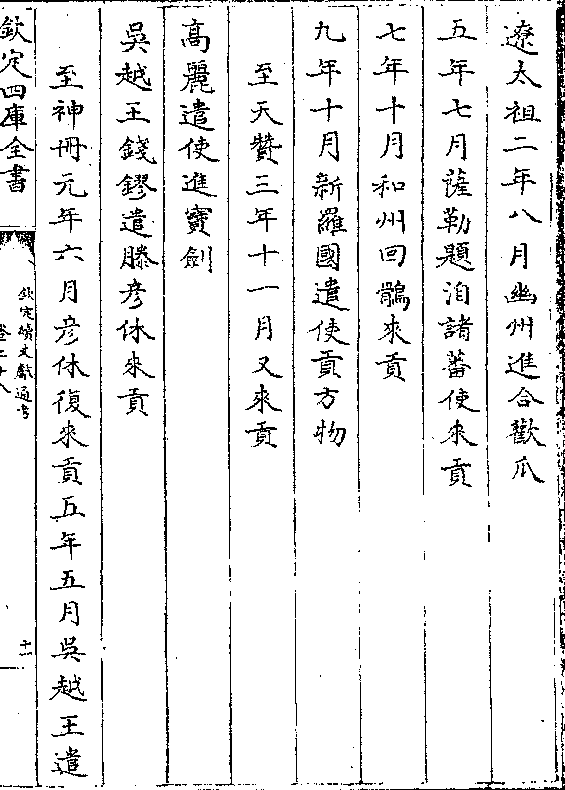 遼太祖二年八月幽州進合歡瓜
五年七月薩勒題洎諸蕃使來貢
七年十月和州回鶻來貢
九年十月新羅國遣使貢方物
至天贊三年十一月又來貢
高麗遣使進寶劍
吳越王錢鏐遣滕彦休來貢
至神冊元年六月彦休復來貢五年五月吳越王遣
欽定四庫全書
欽定續文獻通考
十一